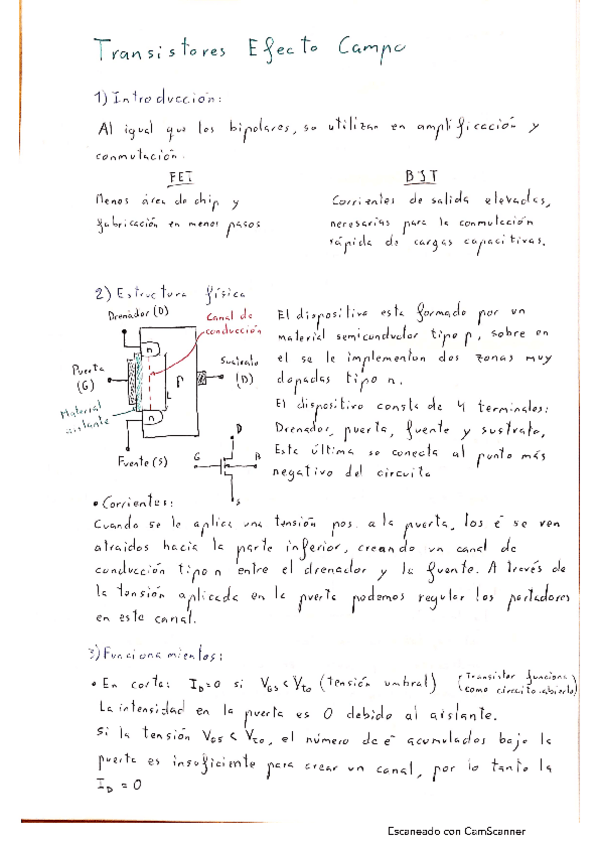 Transistores Efecto Campo
1) Introducción:
Al igual que los bipolares, se utilizan en amplificación y
conmutación.
FET
Menos área de chip y
fabricación en menos pasos
BJT
Corrientes de salida elevadas,
necesarias para la conmutación
rápida de cargas capacitivas.
2) Estructura física
Drenador (D)
Canal de
conducción
Puerta
(G)
Sustrato
(D)
Material
aislante
Fuente (S)
n
n
P
L
D
G
B
S
El dispositivo esta formado por un
material semiconductor tipo p, sobre en
el se le implementan dos zonas muy
dopadas tipo n.
El dispositivo consta de 4 terminales:
Drenador, puerta, fuente y sustrato,
Este última se conecta al punto más
negativo del circuito
• Corrientes:
Cuando se le aplica una tensión pos. a la puerta, los e⁻ se ven
atraidos hacia la parte inferior, creando un canal de
conducción tipo n entre el drenador y la fuente. A través de
la tensión aplicada en la puerta podemos regular los portadores
en este canal.
3) Funcionamientos:
• En corte: I_D=0 si V_GS < V_to (tensión umbral) (Transistor funciona
como circuito abierto)
La intensidad en la puerta es 0 debido al aislante.
Si la tensión V_GS < V_to, el número de e⁻ acumulados bajo la
puerta es insuficiente para crear un canal, por lo tanto la
I_D = 0
Escaneado con CamScanner